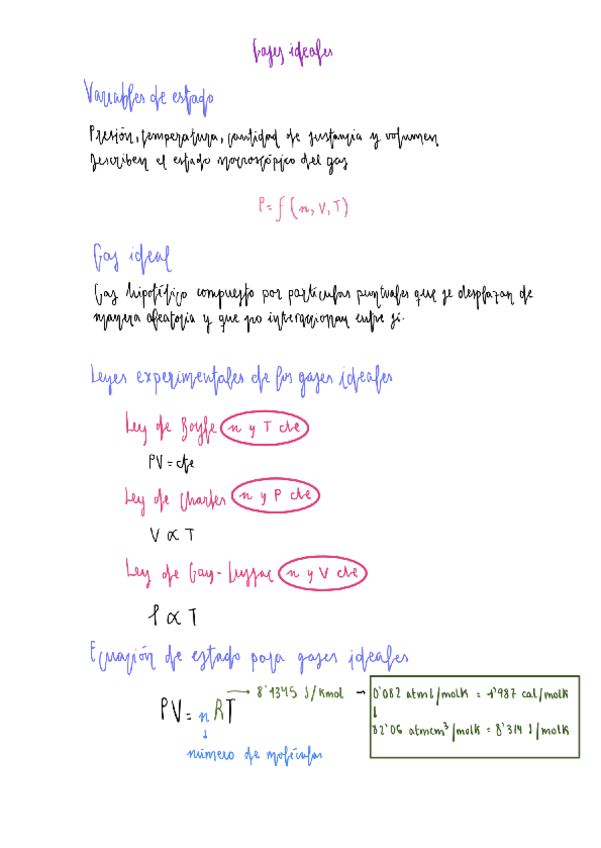 Gases ideales
Variables de estado
Presión, temperatura, cantidad de sustancia y volumen
describen el estado macroscópico del gas
P = f (n, V, T)
Gas ideal
Gas hipotético compuesto por partículas puntuales que se desplazan de
manera aleatoria y que no interaccionan entre sí.
Leyes experimentales de los gases ideales
Ley de Boyle n y T cte
PV = cte
Ley de Charles n y P cte
V ∝ T
Ley de Gay-Lussac n y V cte
P ∝ T
Ecuación de estado para gases ideales
PV = nRT → 8'1345 J/Kmol → 0'082 atmL/molK = 1'987 cal/molK
↓
82'06 atmcm³/molK = 8'314 J/molK
↓
número de moléculas